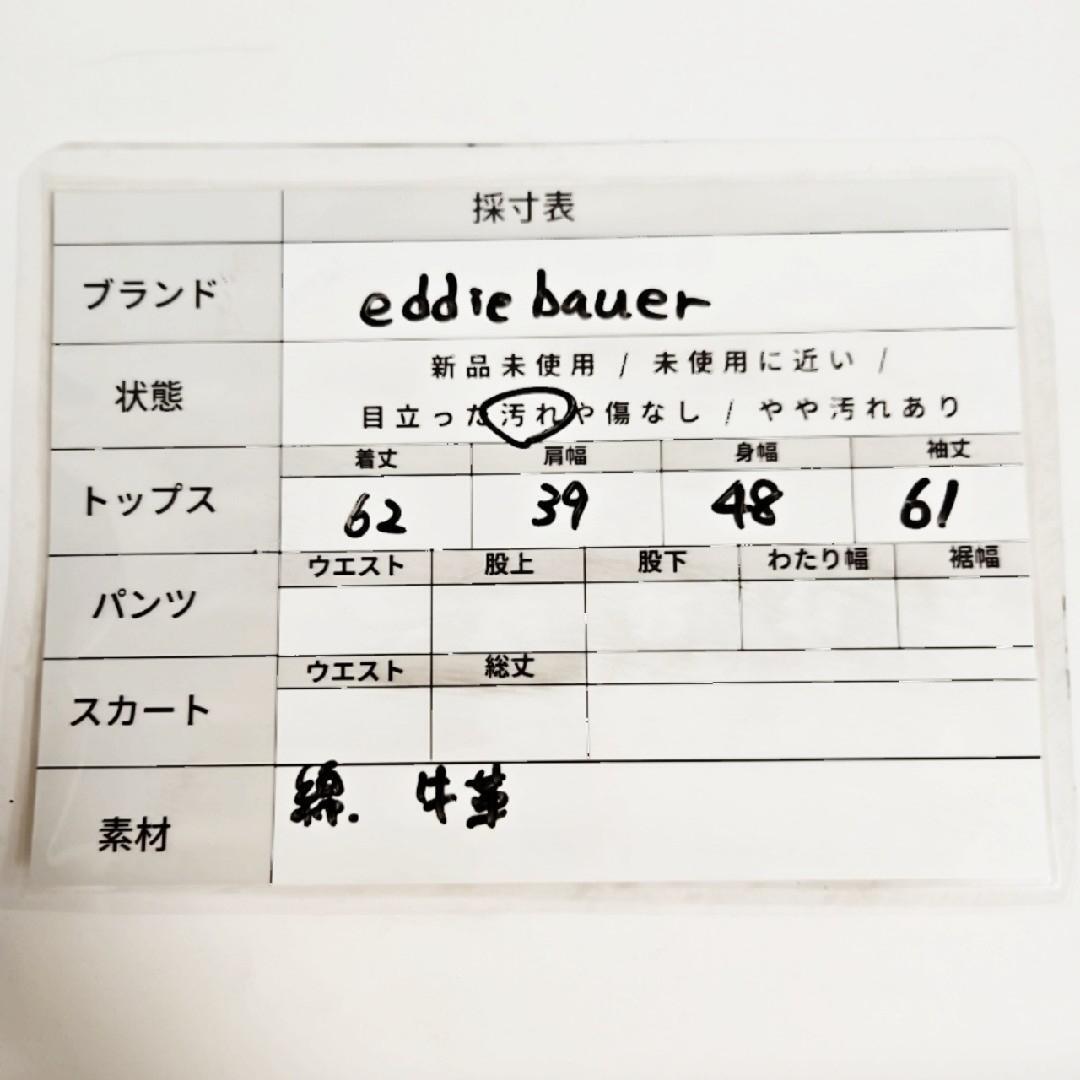 採寸表
ブランド eddie bauer
状態 新品未使用 / 未使用に近い /
目立った汚れや傷なし / やや汚れあり
着丈 肩幅 身幅 袖丈
トップス 62 39 48 61
ウエスト 股上 股下 わたり幅 裾幅
パンツ
ウエスト 総丈
スカート
素材 綿. 牛革